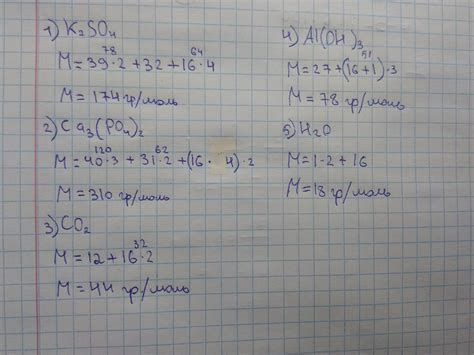 1) K₂SO₄
78 64
M = 39·2 + 32 + 16·4
M = 174 гр/моль
2) Ca₃(PO₄)₂
120 62
M = 40·3 + 31·2 + (16· 4)·2
M = 310 гр/моль
3) CO₂
32
M = 12 + 16·2
M = 44 гр/моль
4) Al(OH)₃
51
M = 27 + (16+1)·3
M = 78 гр/моль
5) H₂O
M = 1·2 + 16
M = 18 гр/моль